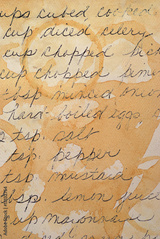 ups cubed cooked
cup diced celery
cup chopped
cup chopped
tbsp. minced onion
hard boiled eggs
tsp. salt
tsp. pepper
tsp. mustard
tbsp. lemon juice
cup mayonnaise